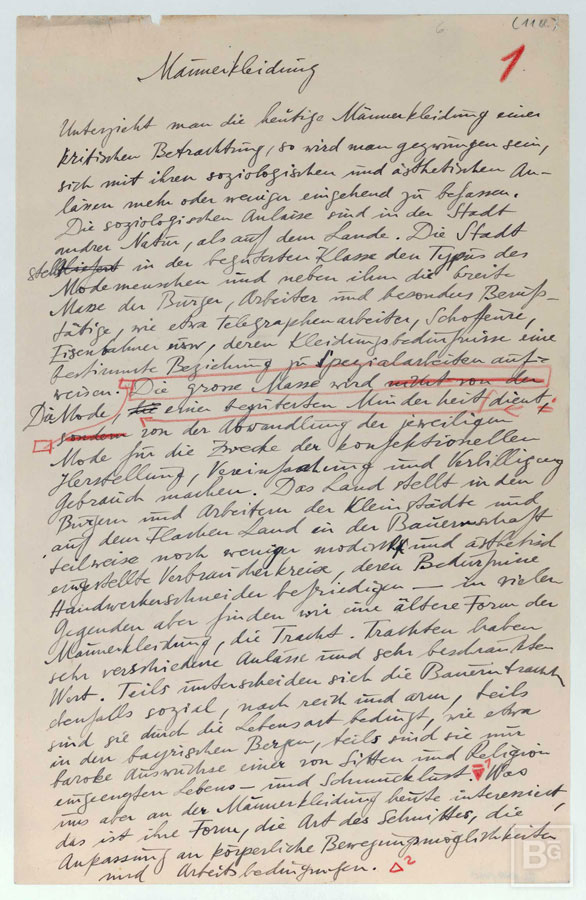 6 (11 II.)
1.
Männerkleidung
Unterzieht man die heutige Männerkleidung einer
kritischen Betrachtung, so wird man gezwungen sein,
sich mit ihren soziologischen und ästhetischen An-
lässen mehr oder weniger eingehend zu befassen.
Die soziologischen Anlässe sind in der Stadt
andrer Natur, als auf dem Lande. Die Stadt
stellt in der begüterten Klasse den Typus des
Modemenschen und neben ihm die breite
Masse der Bürger, Arbeiter und besonders Berufs-
tätige, wie etwa Telegraphenarbeiter, Schoffeure,
Eisenbahner usw, deren Kleidungsbedürfnisse eine
bestimmte Beziehung zu Spezialarbeiten auf-
weisen. Die grosse Masse wird nicht von der
Die Mode, die einer begüterten Minderheit dient,
sondern von der Abwandlung der jeweiligen
Mode für die Zwecke der konfektionellen
Herstellung, Vereinfachung und Verbilligung
Gebrauch machen. Das Land stellt in den
Bürgern und Arbeitern der Kleinstädte und
auf dem Flachen Land in der Bauernschaft
teilweise noch weniger modisch und ästhetisch
eingestellte Verbraucherkreise, deren Bedürfnisse
Handwerkerschneider befriedigen — in vielen
Gegenden aber finden wir eine ältere Form der
Männerkleidung, die Tracht. Trachten haben
sehr verschiedene Anlässe und sehr beschränkten
Wert. Teils unterscheiden sich die Bauerntrachten
ebenfalls sozial, nach reich und arm, teils
sind sie durch die Lebensart bedingt, wie etwa
in den bayrischen Bergen, teils sind sie nur
baroke Auswüchse einer von Sitten und Religion
eingeengten Lebens- und Schmucklust. 1 Was
uns aber an der Männerkleidung heute interessiert,
das ist ihre Form, die Art des Schnittes, die
Anpassung an körperliche Bewegungsmöglichkeiten
und Arbeitsbedingungen. 2
BG